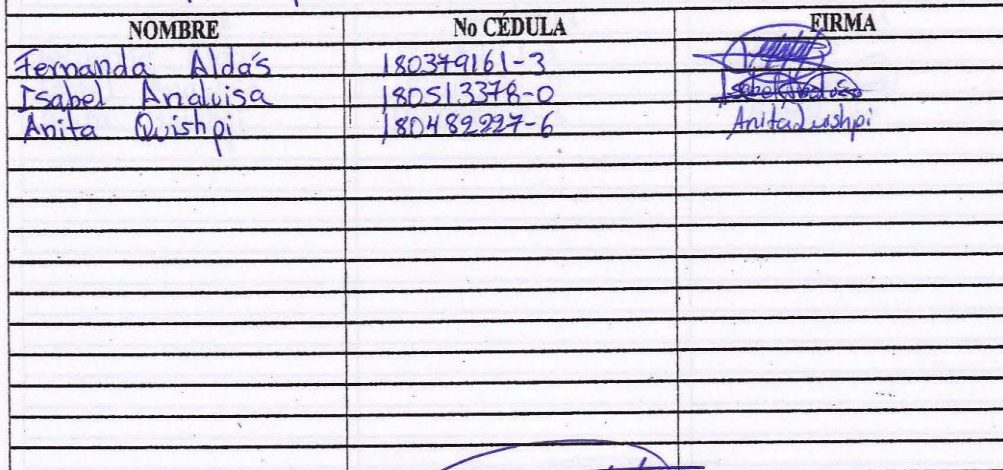 NOMBRE No CÉDULA FIRMA
Fernanda Aldás 180379161-3
Isabel Analuisa 180513378-0 Isabel Analuisa
Anita Quishpi 180482227-6 Anita Quishpi